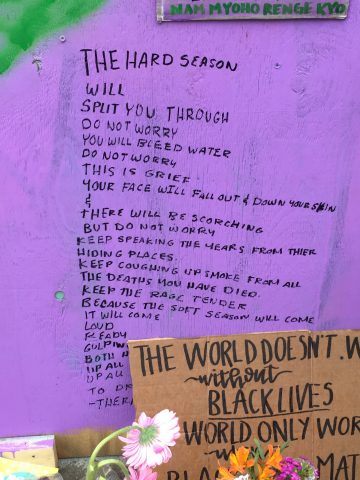 NAM MYOHO RENGE KYO
THE HARD SEASON
WILL
SPLIT YOU THROUGH
DO NOT WORRY
YOU WILL BLEED WATER
DO NOT WORRY
THIS IS GRIEF
YOUR FACE WILL FALL OUT & DOWN YOUR SKIN
&
THERE WILL BE SCORCHING
BUT DO NOT WORRY
KEEP SPEAKING THE YEARS FROM THIER
HIDING PLACES.
KEEP COUGHING UP SMOKE FROM ALL
THE DEATHS YOU HAVE DIED.
KEEP THE RAGE TENDER
BECAUSE THE SOFT SEASON WILL COME
IT WILL COME
LOUD
READY
BOTH
UP ALL
UP ALL
TO
THE WORLD DOESN'T
without
BLACK LIVES
WORLD ONLY